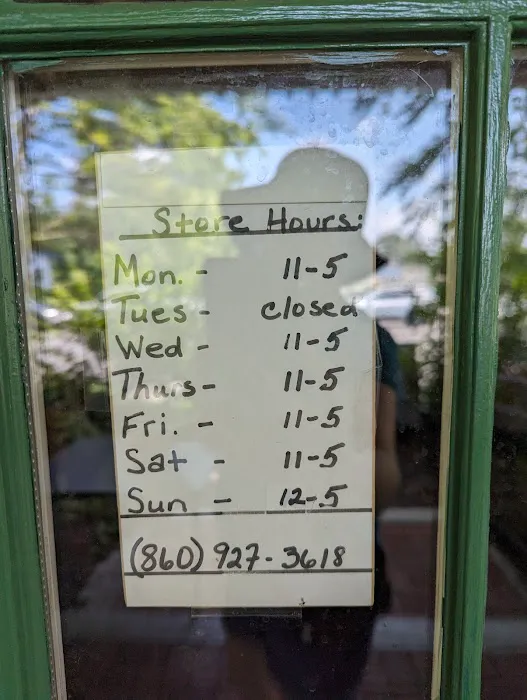 Store Hours:
Mon. - 11-5
Tues - closed
Wed - 11-5
Thurs- 11-5
Fri. - 11-5
Sat - 11-5
Sun - 12-5
(860) 927-3618